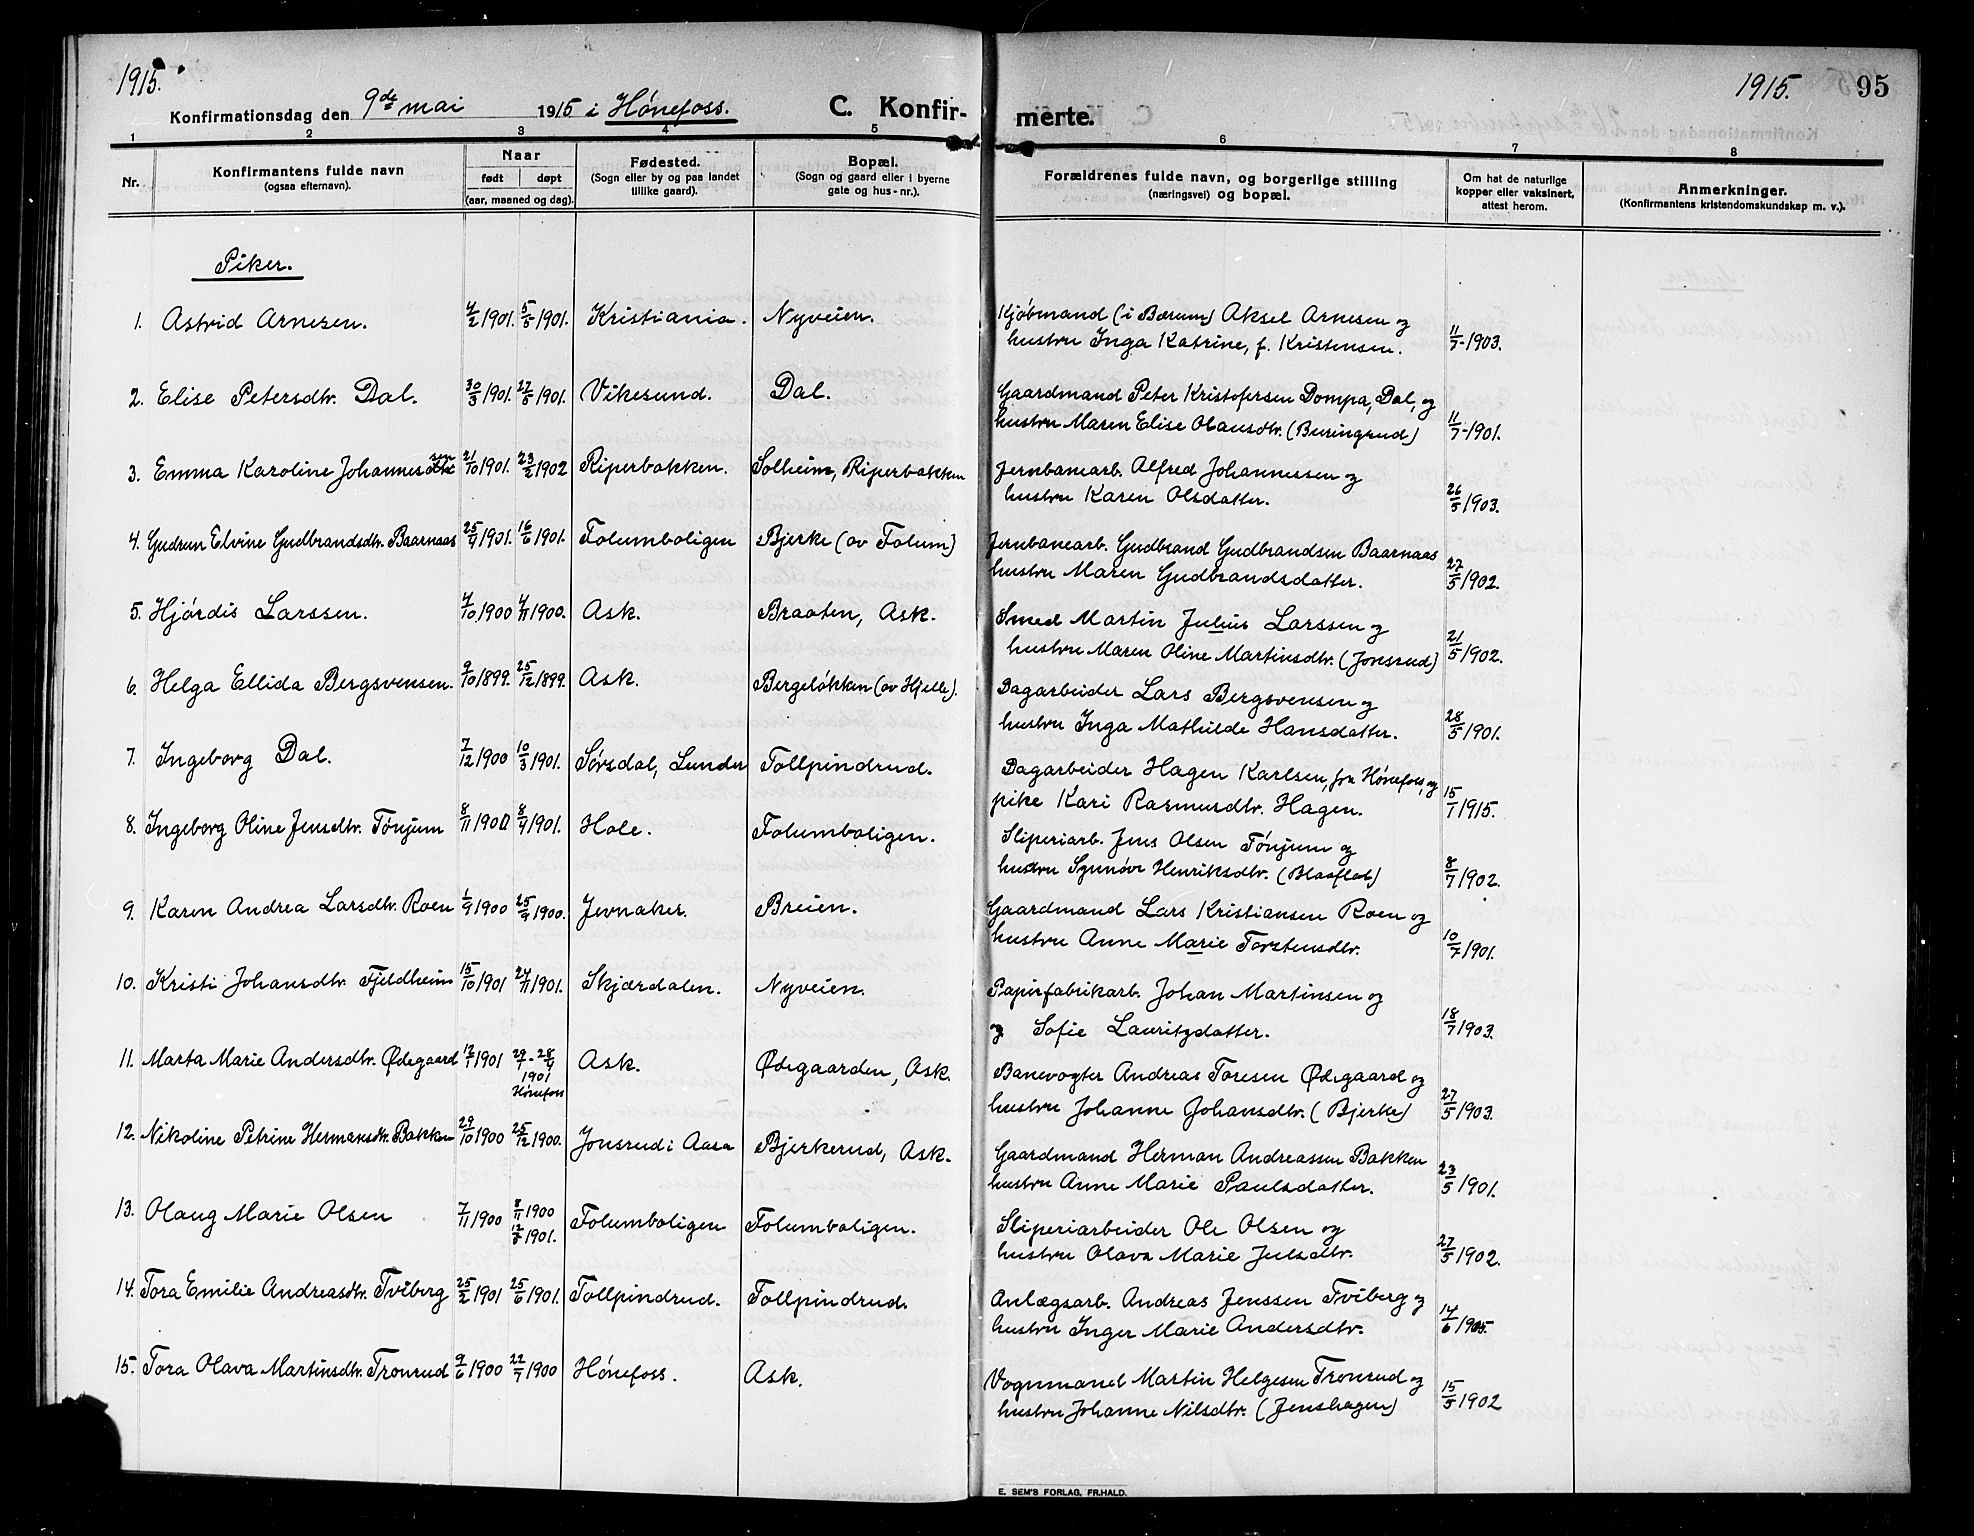 1915.
Konfirmationsdag den 9de mai 1915 i Hønefoss.
C. Konfir-
merte.
1915. 95
1 2 3 4 5 6 7 8
Nr.
Konfirmantens fulde navn
(ogsaa efternavn).
Naar
født døpt
(aar, maaned og dag).
Fødested.
(Sogn eller by og paa landet
tillike gaard).
Bopæl.
(Sogn og gaard eller i byerne
gate og hus-nr.).
Forældrenes fulde navn, og borgerlige stilling
(næringsvei) og bopæl.
Om hat de naturlige
kopper eller vaksinert,
attest herom.
Anmerkninger.
(Konfirmantens kristendomskundskap m. v.).
Piker.
1. Astrid Arnesen. 4/2 1901. 5/5 1901. Kristiania. Nyveien.
Kjøbmand (i Bærum) Aksel Arnesen og
hustru Inga Katrine, f. Kristensen. 11/7-1903.
2. Elise Petersdtr. Dal. 30/3 1901. 27/5 1901. Vikesund. Dal.
Gaardmand Peter Kristofersen Dompa, Dal, og
hustru Maren Elise Olausdtr. (Buringrud) 11/7-1901.
3. Emma Karoline Johannes 21/10 1901. 23/2 1902 Riperbakken. Solheim, Riperbakken
Jernbanearb. Alfred Johannessen og
hustru Karen Olsdatter. 26/5 1903.
4. Gudrun Elvine Gudbrandsdtr. Baarnaas 25/4 1901. 16/6 1901. Folumboligen Bjerke (av Folum)
Jernbanearb. Gudbrand Gudbrandsen Baarnaas
hustru Maren Gudbrandsdatter. 27/5 1902.
5. Hjørdis Larssen. 4/10 1900 4/11 1900. Ask. Braaten, Ask.
Smed Martin Julius Larssen og
hustru Maren Oline Martinsdtr. (Jonsrud) 21/5 1902.
6. Helga Ellida Bergsvensen. 9/10 1899. 25/12 1899. Ask. Bergeløkken (av Hjelle).
Dagarbeider Lars Bergsvensen og
hustru Inga Mathilde Hansdatter. 28/5 1901.
7. Ingeborg Dal. 7/12 1900 10/3 1901. Sørsdal, Lunder Tollpindrud.
Dagarbeider Hagen Karlsen, fra Hønefoss, og
pike Kari Rasmusdtr. Hagen. 15/1 1915.
8. Ingeborg Oline Jensdtr. Tønjum 8/11 1900 8/4 1901. Hole. Folumboligen.
Sliperiarb. Jens Olsen Tønjum og
hustru Synnøve Henriksdtr. (Blaaflat) 8/7 1902.
9. Karen Andrea Larsdtr. Roen 1/9 1900 25/9 1900. Jevnaker. Breien.
Gaardmand Lars Kristiansen Roen og
hustru Anne Marie Torstensdtr. 10/7 1901.
10. Kristi Johansdtr. Fjeldheim 15/10 1901 24/11 1901. Skjærdalen. Nyveien.
Papirfabrikarb. Johan Martinsen og
og Sofie Lauritzdatter. 18/7 1903.
11. Marta Marie Andersdtr. Ødegaard 12/1 1901 Ask. Ødegaarden, Ask.
1901
Hønefoss
Banevogter Andreas Toresen Ødegaard og
hustru Johanne Johansdtr. (Bjerke) 27/5 1903.
12. Nikoline Petrine Hermansdtr. Bakken 29/10 1900 25/12 1900. Jonsrud i Aasa Bjerkerud, Ask.
Gaardmand Herman Andreassen Bakken
hustru Anne Marie Paulsdatter. 23/5 1901.
13. Olaug Marie Olsen 7/11 1900 8/11 1900 Folumboligen Folumboligen.
12/5 1901.
Sliperiarbeider Ole Olsen og
hustru Olava Marie Julsdtr. 27/5 1902.
14. Tora Emilie Andreasdtr. Tviberg 25/2 1901 25/6 1901. Tollpindrud. Tollpindrud.
Anlægsarb. Andreas Jenssen Tviberg og
hustru Inger Marie Andersdtr. 14/6 1905.
15. Tora Olava Martinsdtr. Tronrud 9/6 1900 22/7 1900 Hønefoss. Ask.
Vognmand Martin Helgesen Tronrud og
hustru Johanne Nilsdtr. (Jenshagen) 15/5 1902
E. SEM'S FORLAG, FR.HALD.